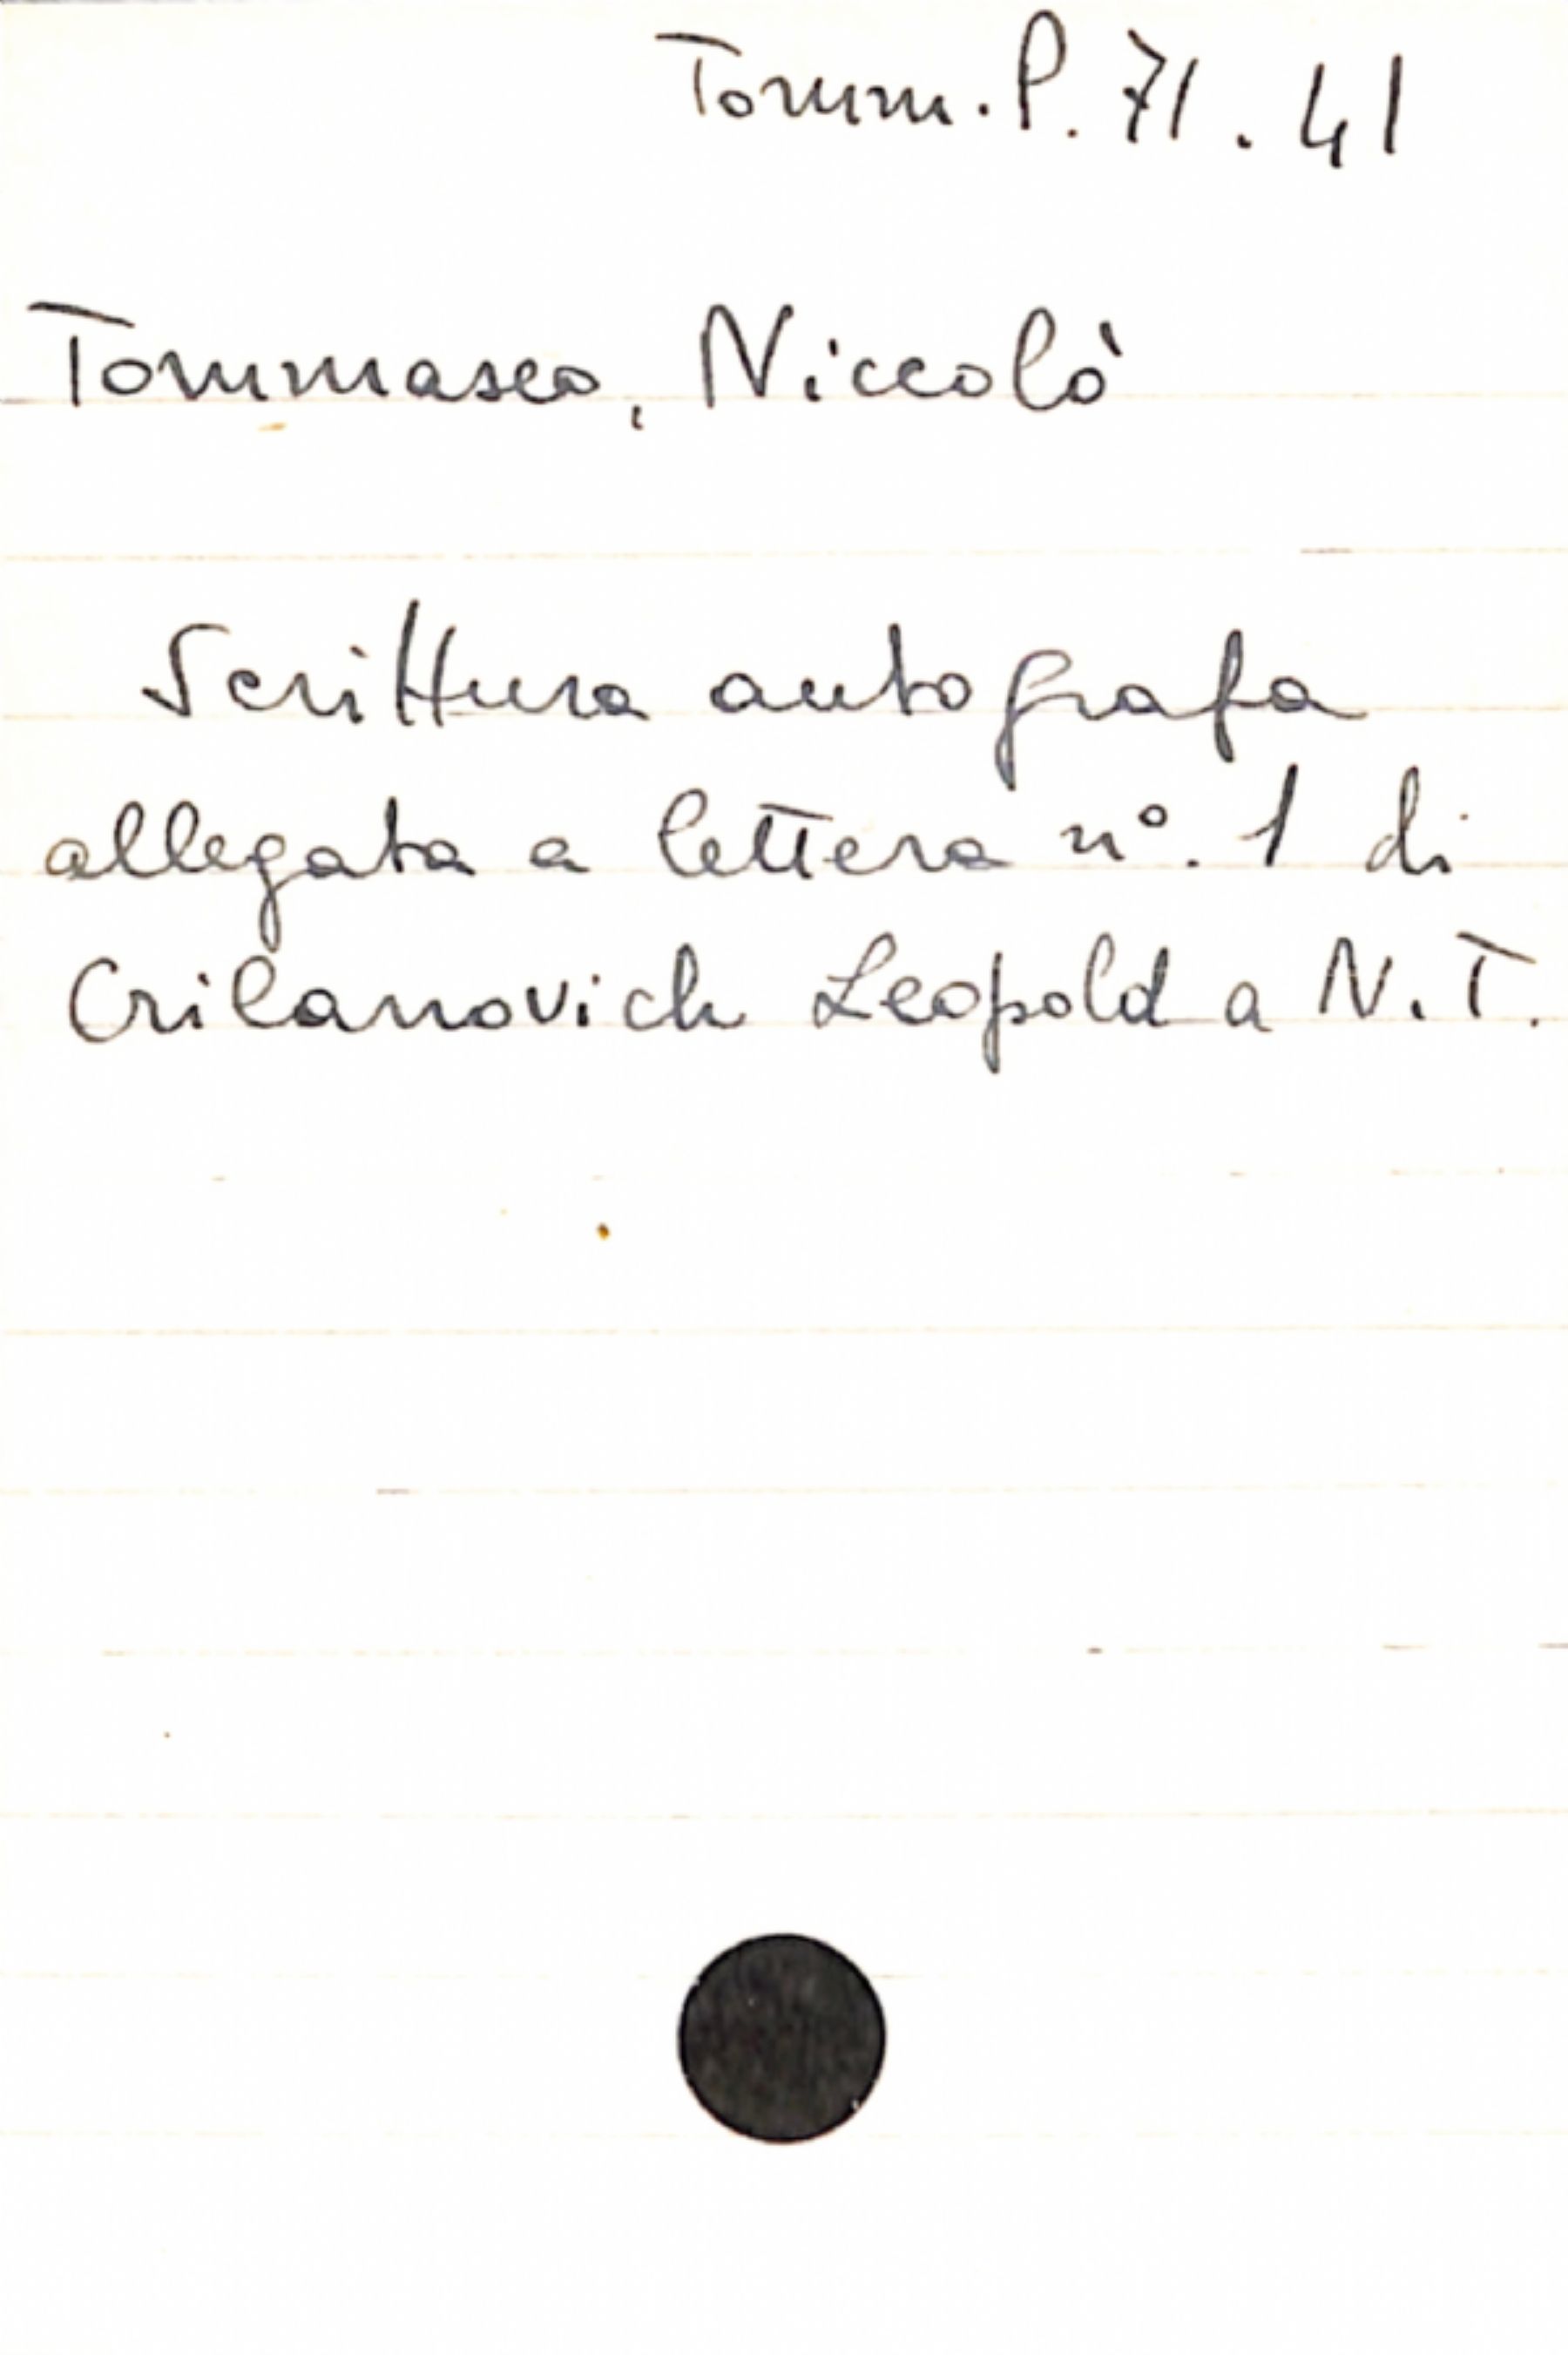 Tomm. P. 71. 41
Tommaseo, Niccolò
Scrittura autografa
allegata a lettera n°. 1 di
Crilanovich Leopold a N. T.